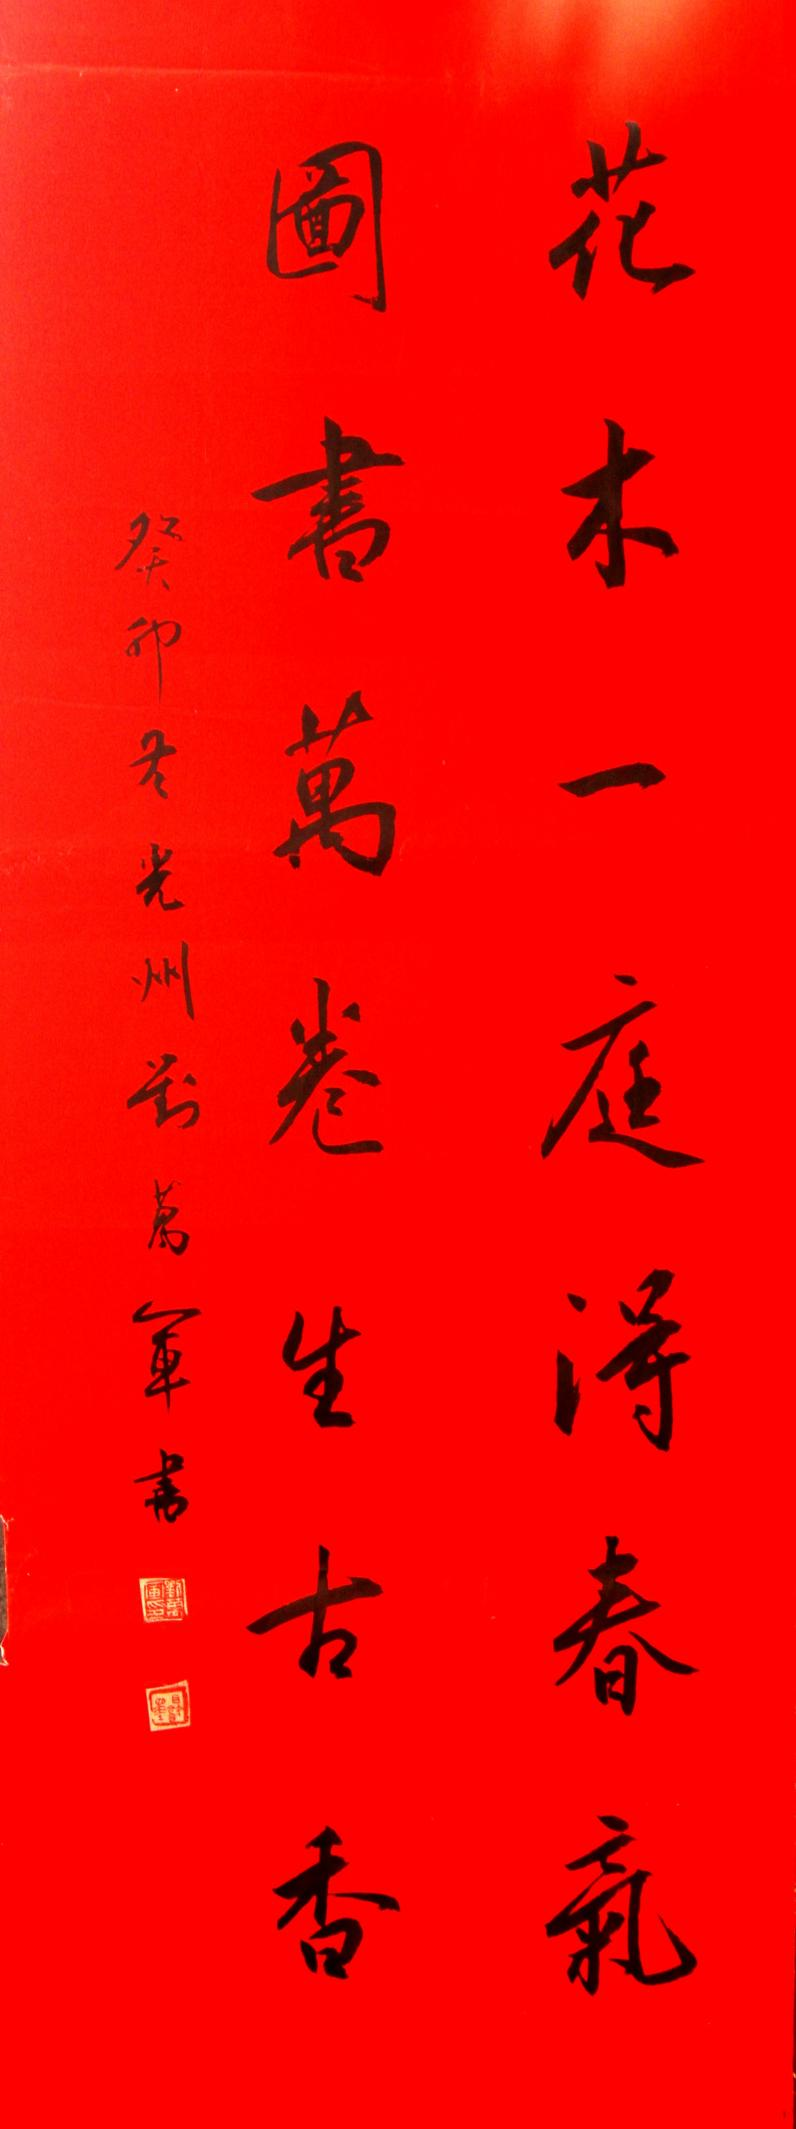 花木一庭得春氣
圖書萬卷生古香
癸卯冬光州劉萬軍書